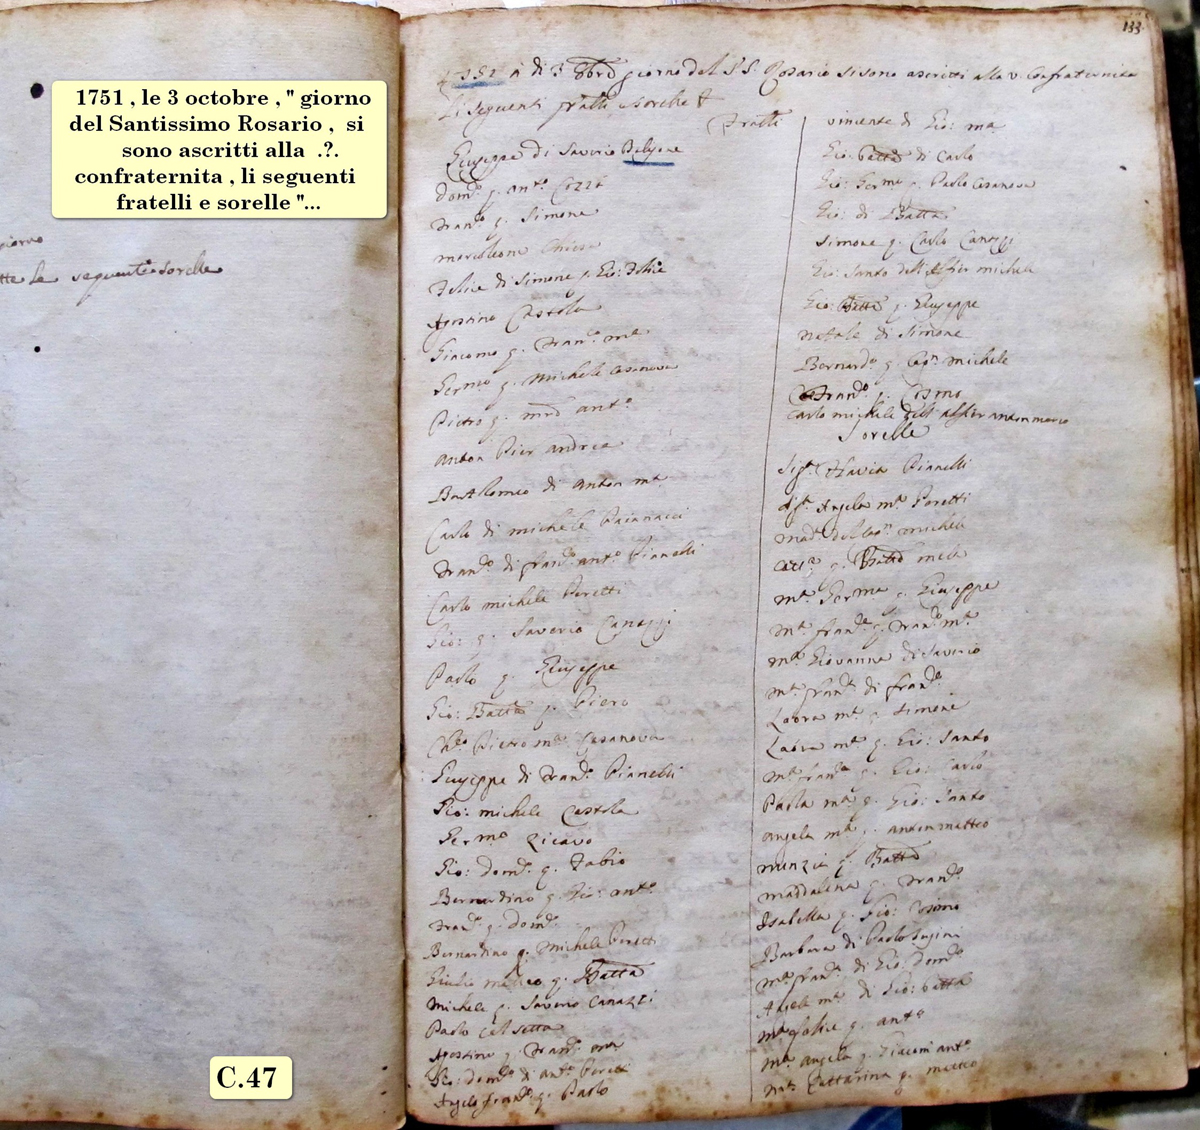 1751 , le 3 octobre , " giorno
del Santissimo Rosario , si
sono ascritti alla .?.
confraternita , li seguenti
fratelli e sorelle "...
giorno
le seguenti Sorelle
C.47
133
di 3 8bre giorno del SS. Rosario si sono ascritti alla v. Confraternita
li seguenti fratelli, e Sorelle
Fratelli
Giuseppe di Saverio
Dom.º q. ant.º Cozzi
Fran.º q. Simone
Felice di Simone q. Gio: Felice
Agostino Castola
Giacomo q. Fran.º m.ª
Germo q. Michele Casanova
Pietro q. ant.º
Anton Pier andrea
Bartholomeo di Anton m.ª
Carlo di michele
Fran.º di fran.º ant.º Pianelli
Carlo michele Peretti
Gio: q. Saverio Canazzi
Paolo q. Giuseppe
Gio: Batta q. Piero
Pietro m.ª Casanova
Giuseppe di Fran.º Pianelli
Gio: michele Castola
Germo Zicavo
Gio: dom.º q. Fabio
Bernardino q. Gio: ant.º
Fran.º q. dom.º
Bernardino q. Michele Peretti
Giulio matteo q. Batta
Michele q. Saverio Canazzi
Paolo
Agostino q. Fran.º m.ª
Gio: dom.º di ant.º Peretti
Angelo fran.º q. Paolo
vincente di Gio: m.ª
Gio: Batta di Carlo
Gio: Germo q. Paolo Casanova
Gio: di Batta
Simone q. Carlo Canazzi
Gio: Santo dell'Alfier michele
Gio: Batta q. Giuseppe
Natale di Simone
Bernard.º q. Cap.n michele
Fran.º q. Cosmo
Carlo michele dell'Alfier anton marco
Sorelle
Sig.ª Flavia Pianelli
Sig.ª Angela m.ª Peretti
mad.ª del Cap.n michele
q. Batta
m.ª Germa q. Giuseppe
m.ª fran.ª q. Fran.º m.ª
m.ª Giovanna di Saverio
m.ª fran.ª di fran.º
Laora m.ª q. Simone
Laora m.ª q. Gio: Santo
m.ª fran.ª q. Gio: Carlo
Paola m.ª q. Gio: Santo
Angela m.ª q. anton matteo
nunzia q. Batta
maddalena q. Fran.º
Isabella q. Gio: Cosimo
Barbara di Paolo
m.ª fran.ª di Gio: dom.º
Angela m.ª di Gio: batta
m.ª felice q. ant.º
m.ª angela q. Giacom ant.º
m.ª Cattarina q. matteo